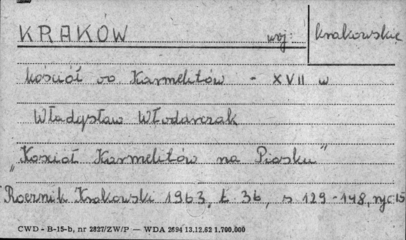 KRAKÓW woj: krakowskie
kościół oo Karmelitów - XVII w
Władysław Włodarczak
„Kościół Karmelitów na Piasku"
Rocznik Krakowski 1963, t. 36, s 129-148, ryc 15
CWD - B-15-b, nr 2827/ZW/P — WDA 2694 13.12.62 1.700.000